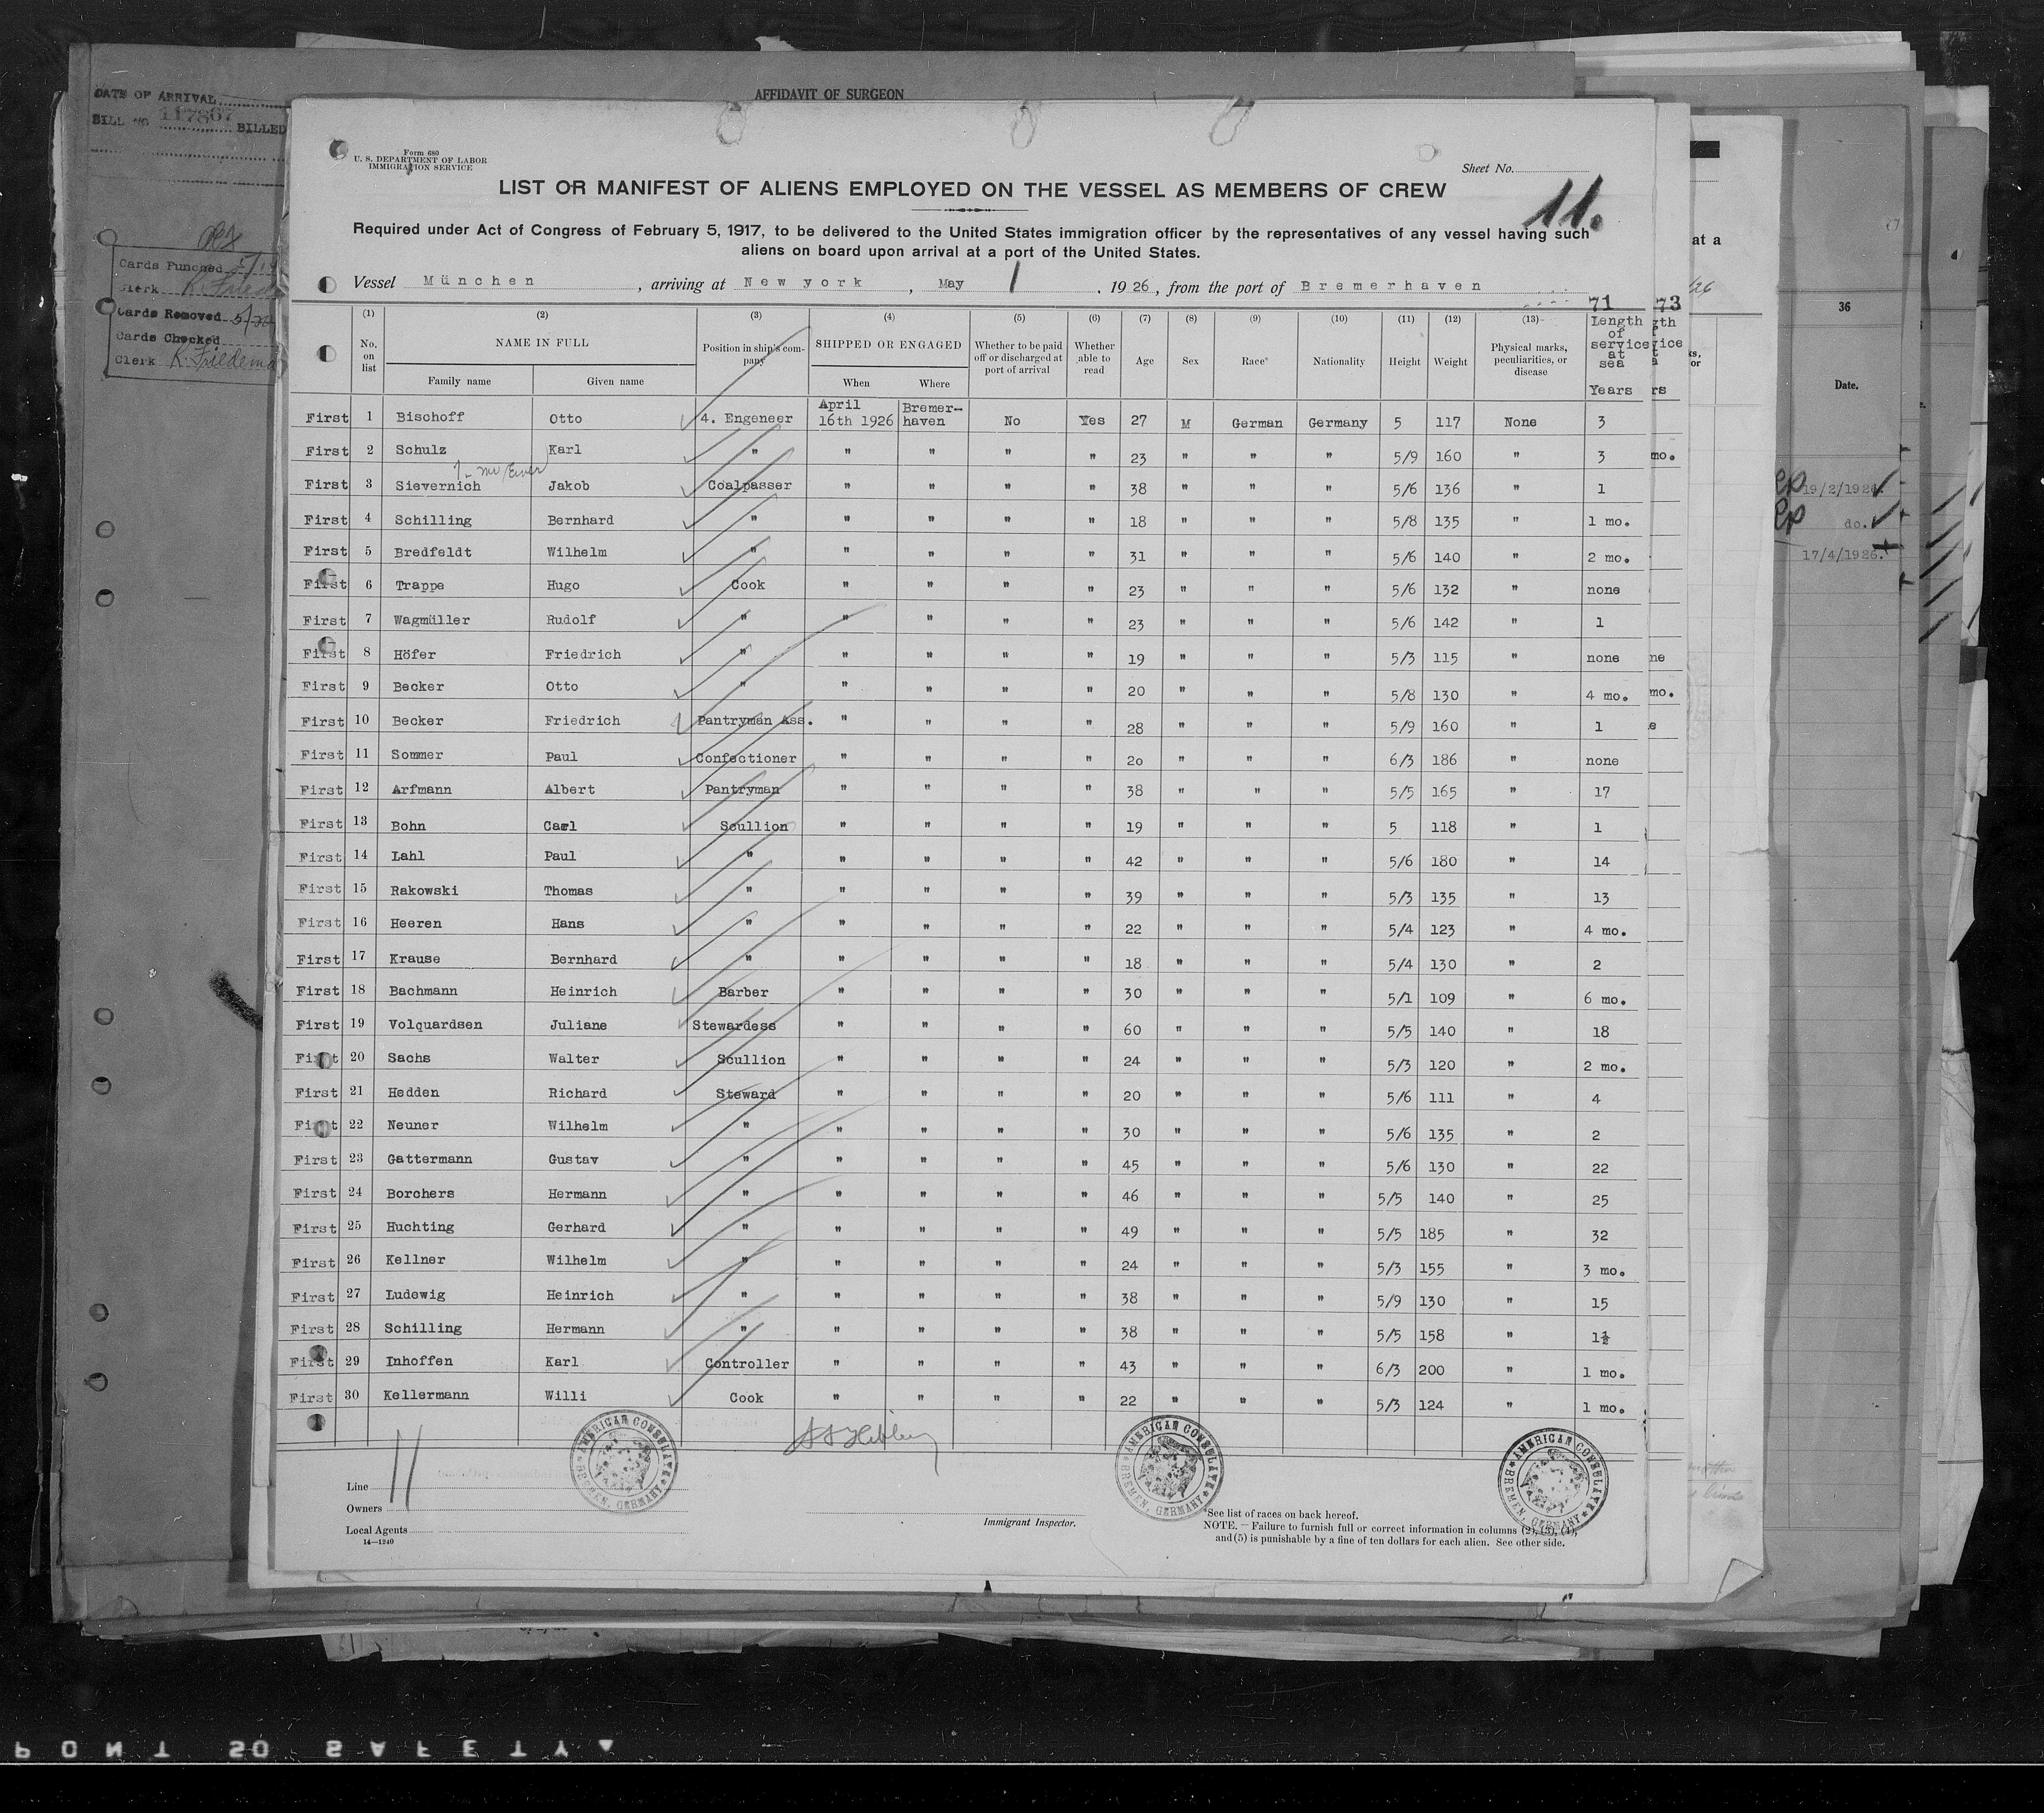 AFFIDAVIT OF SURGEON
DATE OF ARRIVAL
BILL NO 117867 BILLED
Cards Punched 5/19
Clerk K. Friede
Cards Removed 5/20
Cards Checked
Clerk K. Friedema
Form 680
U. S. DEPARTMENT OF LABOR
IMMIGRATION SERVICE
Sheet No.
11.
LIST OR MANIFEST OF ALIENS EMPLOYED ON THE VESSEL AS MEMBERS OF CREW
Required under Act of Congress of February 5, 1917, to be delivered to the United States immigration officer by the representatives of any vessel having such
aliens on board upon arrival at a port of the United States.
Vessel München, arriving at New york, May 1, 1926, from the port of Bremerhaven
71 73
(1) (2) (3) (4) (5) (6) (7) (8) (9) (10) (11) (12) (13)
No. on list NAME IN FULL Family name Given name Position in ship's company SHIPPED OR ENGAGED When Where Whether to be paid off or discharged at port of arrival Whether able to read Age Sex Race* Nationality Height Weight Physical marks, peculiarities, or disease Length of service at sea Years
First 1 Bischoff Otto 4. Engeneer April 16th 1926 Bremerhaven No Yes 27 M German Germany 5 117 None 3
First 2 Schulz Karl " " " " " 23 " " " 5/9 160 " 3
First 3 Sievernich Jakob Coalpasser " " " " 38 " " " 5/6 136 " 1
First 4 Schilling Bernhard " " " " " 18 " " " 5/8 135 " 1 mo.
First 5 Bredfeldt Wilhelm " " " " " 31 " " " 5/6 140 " 2 mo.
First 6 Trappe Hugo Cook " " " " 23 " " " 5/6 132 " none
First 7 Wagmüller Rudolf " " " " " 23 " " " 5/6 142 " 1
First 8 Höfer Friedrich " " " " " 19 " " " 5/3 115 " none
First 9 Becker Otto " " " " " 20 " " " 5/8 130 " 4 mo.
First 10 Becker Friedrich Pantryman Ass. " " " " 28 " " " 5/9 160 " 1
First 11 Sommer Paul Confectioner " " " " 2o " " " 6/3 186 " none
First 12 Arfmann Albert Pantryman " " " " 38 " " " 5/5 165 " 17
First 13 Bohn Carl Scullion " " " " 19 " " " 5 118 " 1
First 14 Lahl Paul " " " " " 42 " " " 5/6 180 " 14
First 15 Rakowski Thomas " " " " " 39 " " " 5/3 135 " 13
First 16 Heeren Hans " " " " " 22 " " " 5/4 123 " 4 mo.
First 17 Krause Bernhard " " " " " 18 " " " 5/4 130 " 2
First 18 Bachmann Heinrich Barber " " " " 30 " " " 5/1 109 " 6 mo.
First 19 Volquardsen Juliane Stewardess " " " " 60 " " " 5/5 140 " 18
First 20 Sachs Walter Scullion " " " " 24 " " " 5/3 120 " 2 mo.
First 21 Hedden Richard Steward " " " " 20 " " " 5/6 111 " 4
First 22 Neuner Wilhelm " " " " " 30 " " " 5/6 135 " 2
First 23 Gattermann Gustav " " " " " 45 " " " 5/6 130 " 22
First 24 Borchers Hermann " " " " " 46 " " " 5/5 140 " 25
First 25 Huchting Gerhard " " " " " 49 " " " 5/5 185 " 32
First 26 Kellner Wilhelm " " " " " 24 " " " 5/3 155 " 3 mo.
First 27 Ludewig Heinrich " " " " " 38 " " " 5/9 130 " 15
First 28 Schilling Hermann " " " " " 38 " " " 5/5 158 " 1½
First 29 Inhoffen Karl Controller " " " " 43 " " " 6/3 200 " 1 mo.
First 30 Kellermann Willi Cook " " " " 22 " " " 5/3 124 " 1 mo.
AMERICAN CONSULATE BREMEN, GERMANY
AMERICAN CONSULATE BREMEN, GERMANY
AMERICAN CONSULATE BREMEN, GERMANY
11
Line
Owners
Local Agents
14—1240
Immigrant Inspector.
*See list of races on back hereof.
NOTE.—Failure to furnish full or correct information in columns (2), (3), (4),
and (5) is punishable by a fine of ten dollars for each alien. See other side.
at a
36
Date.
19/2/1926.
do.
17/4/1926.
PONT SO SAFETY